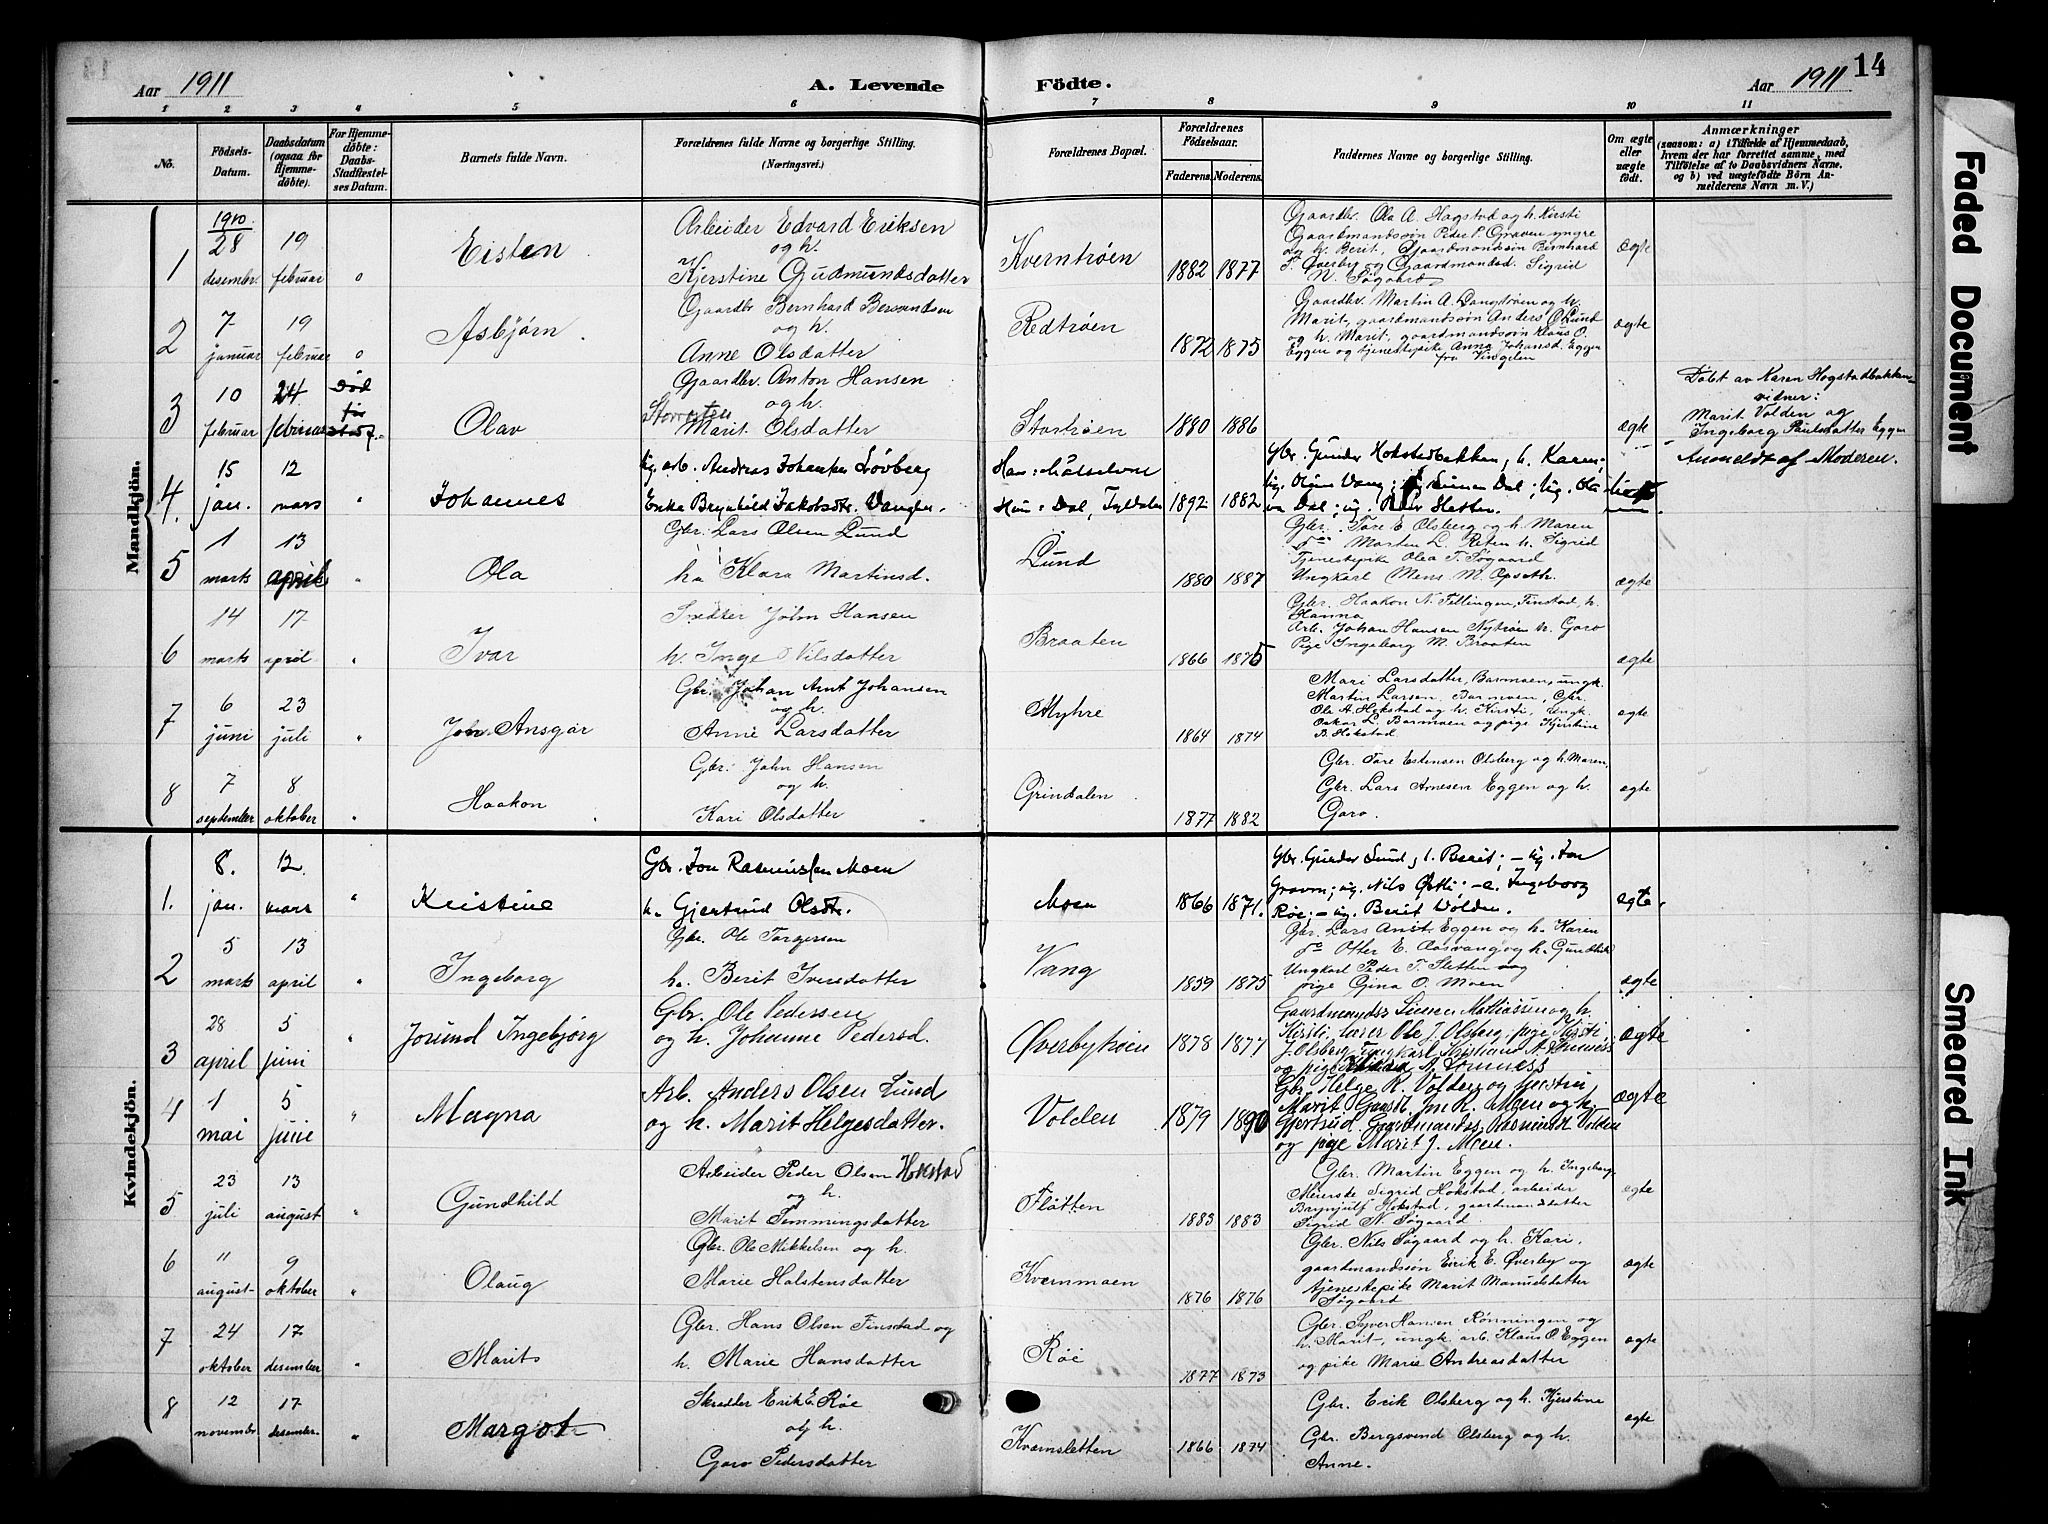 Aar 1911
A. Levende
Födte.
Aar 1911
14
1 2 3 4 5 6 7 8 9 10 11
No.
Födsels-Datum.
Daabsdatum (ogsaa for Hjemmedöbte).
For Hjemmedöbte: Daabs-Stadfæstelses Datum.
Barnets fulde Navn.
Forældrenes fulde Navne og borgerlige Stilling.
(Næringsvei.)
Forældrenes Bopæl.
Forældrenes Födselsaar.
Faderens. Moderens.
Faddernes Navne og borgerlige Stilling.
Om ægte eller uægte födt.
Anmærkninger
(saasom: a) i Tilfælde af Hjemmedaab, hvem der har forrettet samme, med Tilföielse af to Daabsvidners Navne, og b) ved uægtefödte Börn Anmelderens Navn m. V.)
Mandkjön.
1
1910
28 desember
19 februar
0
Eisten
Arbeider Edvard Eriksen
og h.
Kjerstine Gudmundsdatter
Kverntrøen
1882 1877
Gaardbr. Ola A. Hogstad og h. Kirsti
Gaardmandssøn Peder P. Graven yngre
og h. Berit, Gaardmandssøn Bernhard
T. Øverby og Gaardmandsd. Sigrid
N. Søgaard
ægte
2
7 januar
19 februar
0
Asbjørn
Gaardbr Bernhard Bersvendsen
og h.
Anne Olsdatter
Rødtrøen
1872 1875
Gaardbr. Martin A. Langtrøen og h.
Marit, gaardmandssøn Anders O. Lund
og h. Marit, gaardmandssøn Klaus O.
Eggen og tjenestepike Anna Johansd. Eggen
fra Vingelen
ægte
3
10 februar
24 februar
Død før stadf.
Olav
Gaardbr. Anton Hansen
og h.
Marit Olsdatter
Stortrøen
1880 1886
ægte
Døbt av Karen Hogstadbakken
vidner:
Marit Volden og
Ingeborg Paulsdatter Eggen
4.
15 jan.
12 mars
"
Johannes
Ug. arb. Andreas Johansen Løvberg
Erika Brynhild Jakobsdtr. Vangen.
Han: Målselven
Hun: Dal, Tyldalen
1892 1882
Gbr. Gunder Hokstadbakken, h. Karen;
Anmeldt af Moderen.
5
1 marts
13 april
"
Ola
Gbr. Lars Olsen Lund
h. Klara Martinsd.
Lund
1880 1887
Gbr. Tore E. Olsberg og h. Maren
do Morten L. Reten h. Sigrid
Tjenestepike Olea T. Søgaard
Ungkarl Mens M. Opseth.
ægte
6
14 marts
17 april
"
Ivar
Snedker John Hansen
h. Inge Nilsdatter
Braaten
1866 1875
Gbr. Haakon N. Tellingen, Finstad, h.
Hanna
Arb. Johan Hansen Nytrøen h. Goro
Pige Ingeborg M. Braaten
ægte
7
6 juni
23 juli
"
John Ansgar
Gbr. Johan Arnt Johansen
og h.
Anne Larsdatter
Myhre
1864 1874
Mari Larsdatter, Barmoen, ungk.
Martin Larsen Barmoen, Gbr.
Ola A. Hokstad og h. Kirsti, ungk.
Oskar L. Barmoen og pige Kjerstine
B. Hokstad
ægte
8
7 september
8 oktober
"
Haakon
Gbr. John Hansen
og h.
Kari Olsdatter
Grindalen
1877 1882
Gbr. Tore Estensen Olsberg og h. Maren,
Gbr. Lars Arnesen Eggen og h.
Goro.
ægte
Kvindekjön.
1.
8. jan.
12. mars
"
Kristine
Gbr. Jon Rasmussen Moen
h. Gjertrud Olsdtr.
Moen
1866 1871.
Gbr. Gunder Lund, h. Berit; - ug. Jon
Graven; ug. Nils Østli; - e. Ingeborg
Røe; - ug. Berit Volden.
ægte.
2
5 marts
13 april
"
Ingeborg
Gbr. Ole Torgersen
h. Berit Iversdatter
Vang
1859 1875
Gbr. Lars Arnst. Eggen og h. Karen
do Otter E. Aasvang og h. Gundhild
Ungkarl Peder T. Sletten og
pige Gina O. Moen
ægte
3
28 april
5 juni
"
Jorund Ingebjørg
Gbr. Ole Pedersen
og h. Johanne Pedersd.
Øverbytrøen
1878 1877
Gaardmandss Simen Mathiassen og h.
Kirsti, lærer Ole J. Olsberg, pige Kirsti
J. Olsberg, Ungkarl Kristian A.
ægte
4
1 mai
5 juni
"
Magna
Arb. Anders Olsen Lund
og h. Marit Helgesdatter.
Volden
1879 1890
Gbr. Helge R. Volden og hustru
Marit, Gaardb. Jon R. Moen og h.
Gjertrud, Gaardmandss. Rasmus H. Volden
og pige Marit J. Moen.
ægte
5
23 juli
13 august
"
Gundhild
Arbeider Peder Olsen Hokstad
og h.
Marit Flemmingsdatter
Fløtten
1883 1883
Gbr. Martin Eggen og h. Ingeborg
Meierske Sigrid Hokstad, arbeider
Brynjulf Hokstad, gaardmandsdatter
Sigrid N. Søgaard
ægte
6
11 august
9 oktober
"
Olaug
Gbr. Ole Mikkelsen og h.
Marie Halstensdatter
Kvernmoen
1876 1876
Gbr. Nils Søgaard og h. Kari,
gaardmandssøn Eirik E. Øverby og
tjenestepike Marit Manuelsdatter
Søgaard
ægte
7
24 oktober
17 desember
"
Marit
Gbr. Hans Olsen Finstad og
h. Marie Hansdatter
Røe
1877 1873
Gbr. Syver Hansen Rønningen og
h. Marit, ungk. arb. Klaus O. Eggen
og pike Marie Andreasdatter
ægte
8
12 november
17 desember
"
Margot
Skrædder Erik E. Røe
og h.
Goro Pedersdatter
Kvernsletten
1866 1874
Gbr. Erik Olsberg og h. Kjerstine
Gbr. Bergsvend Olsberg og h.
Anne.
ægte
Faded Document
Smeared Ink